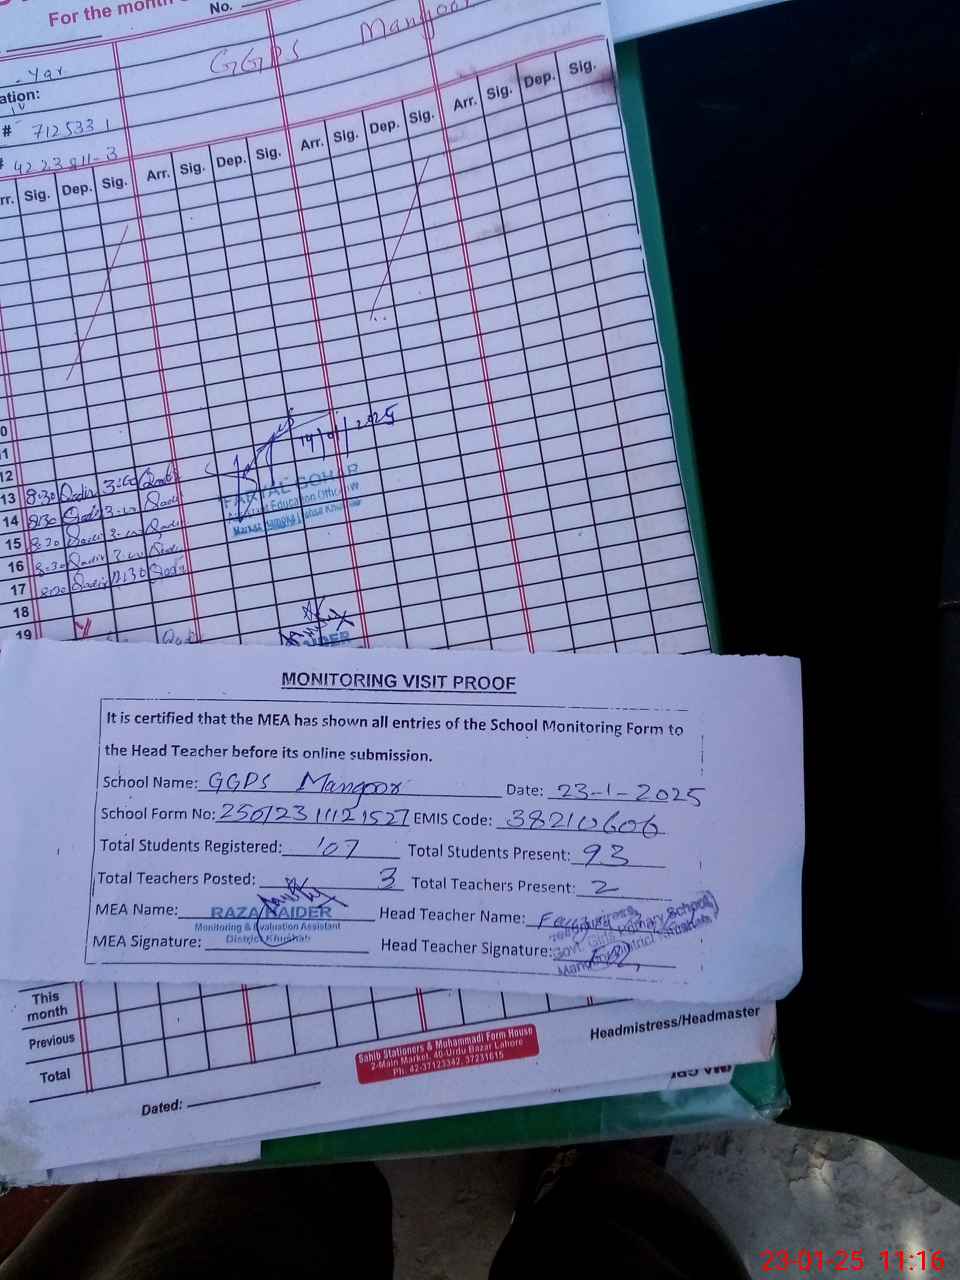 For the month
No.
GGPS Mangoor
Yar
ation:
# 7125331
# 4223811-3
rr. Sig. Dep. Sig. Arr. Sig. Dep. Sig. Arr. Sig. Dep. Sig. Arr. Sig. Dep. Sig.
0
11
12
13 8:30 Qadir 3:00
14 8:30 3-00
15 8:30 3-00
16 8:30
17 8:30 12:30
18
19
2025
Assistant Education Officer
RAIDER
MONITORING VISIT PROOF
It is certified that the MEA has shown all entries of the School Monitoring Form to
the Head Teacher before its online submission.
School Name: GGPS Mangoor Date: 23-1-2025
School Form No: 25012311121527 EMIS Code: 38210606
Total Students Registered: 107 Total Students Present: 93
Total Teachers Posted: 3 Total Teachers Present: 2
MEA Name: RAZA HAIDER Head Teacher Name:
Monitoring & Evaluation Assistant
District Khushab
MEA Signature: Head Teacher Signature:
Govt. Girls Primary School
Mangoor District Khushab
This
month
Previous
Total
Sahib Stationers & Muhammadi Form House
2-Main Market, 40-Urdu Bazar Lahore
Ph. 42-37123342, 37231615
Headmistress/Headmaster
Dated:
23-01-25 11:16